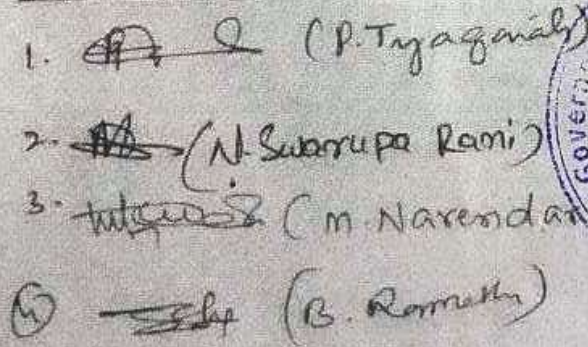 1. (P. Tyagaraj)
2. (N. Swarupa Rani)
3. (M. Narendar
4 (B. Ramesh)
GOVER